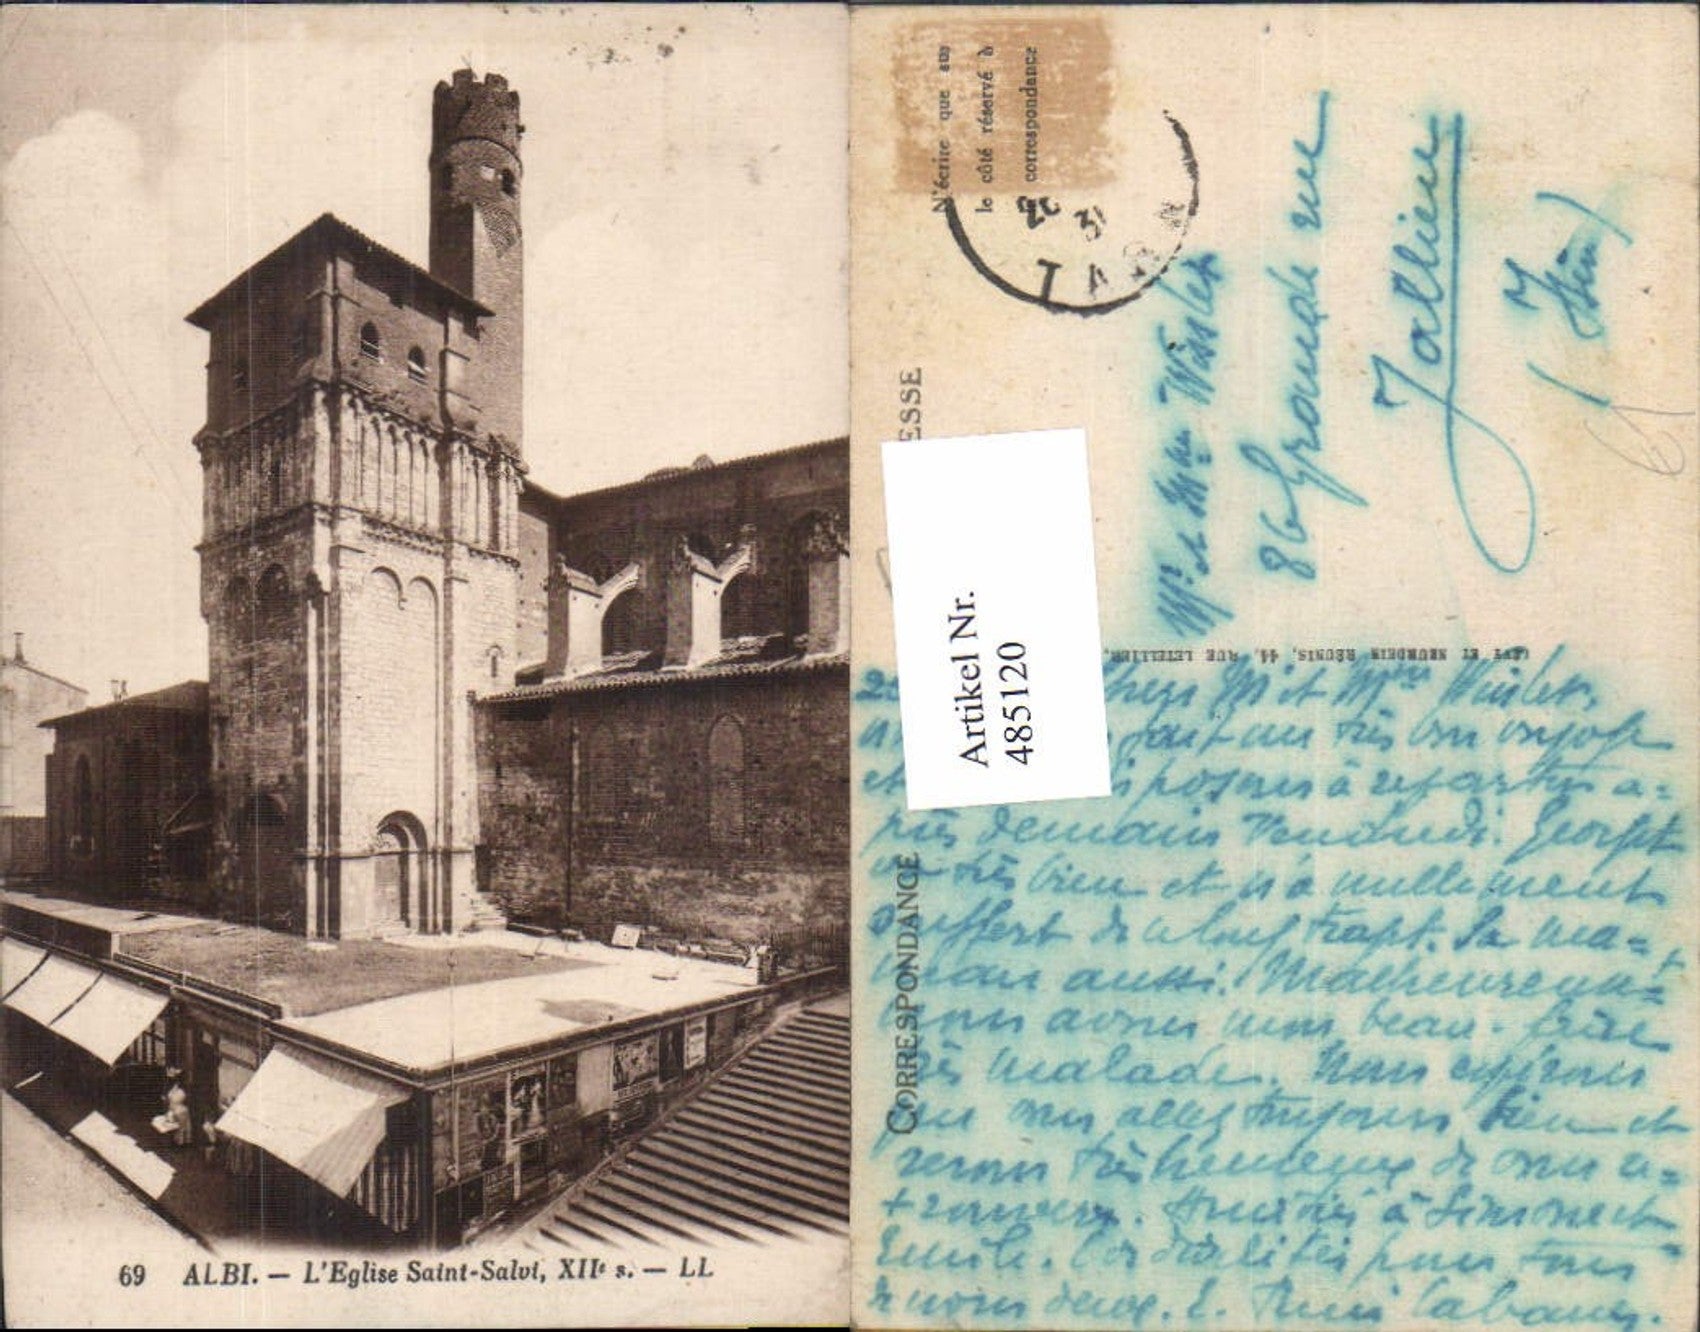 69 ALBI. — L'Eglise Saint-Salvi, XIIe s. — LL
N'écrire que sur
le côté réservé à
correspondance
ESSE
CORRESPONDANCE
LÉVY ET NEURDEIN RÉUNIS, 44, RUE LETELLIER,
Artikel Nr.
485120
Mr et Mme
86 Grande rue
Jallieu
(Isère)
Chers Mr et Mme
fait un très bon voyage
et disposons à repartir a-
près demain Vendredi. Georget
va très bien et n'a nullement
souffert de ce long trajet. Sa ma-
man aussi. Malheureuse-
nous avons mon beau-frère
très malade. Nous espérons
que vous allez toujours bien et
serons très heureux de vous re-
trouver. Amitiés à Simone et
Emile. Cordialités pour tous
de nous deux. E.